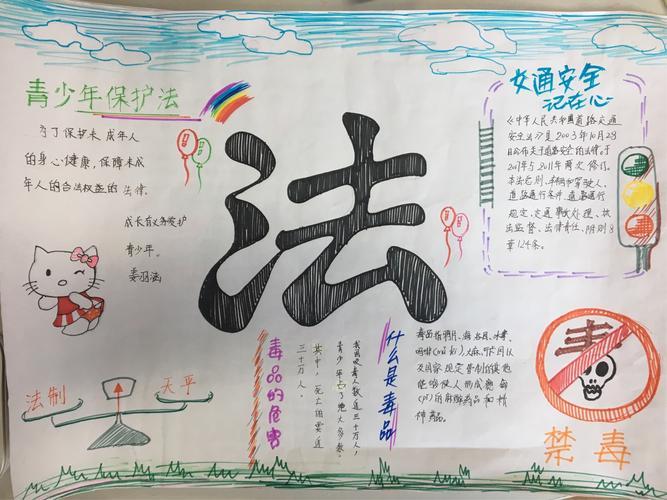 青少年保护法
为了保护未成年人
的身心健康，保障未成
年人的合法权益的法律。
成长有义务爱护
青少年。
法
交通安全
记在心
《中华人民共和国道路交通
安全法》是2003年10月28
日公布关于道路安全的法律。于
2007年与2011年两次修订。
本法总则、车辆和驾驶人、
道路通行条件、道路通行
规定、交通事故处理、执
法监督、法律责任、附则8
章124条。
法制
天平
毒品的危害
我国吸毒人数近三十万人，
青少年占了绝大多数。
其中，死亡人数近
三十万人。
什么是毒品
毒品指鸦片、海洛因、冰毒、
吗啡
大麻、可卡因以
及国家规定管制的其他
能够使人形成瘾癖
的麻醉药品和精
神药品。
毒
禁毒